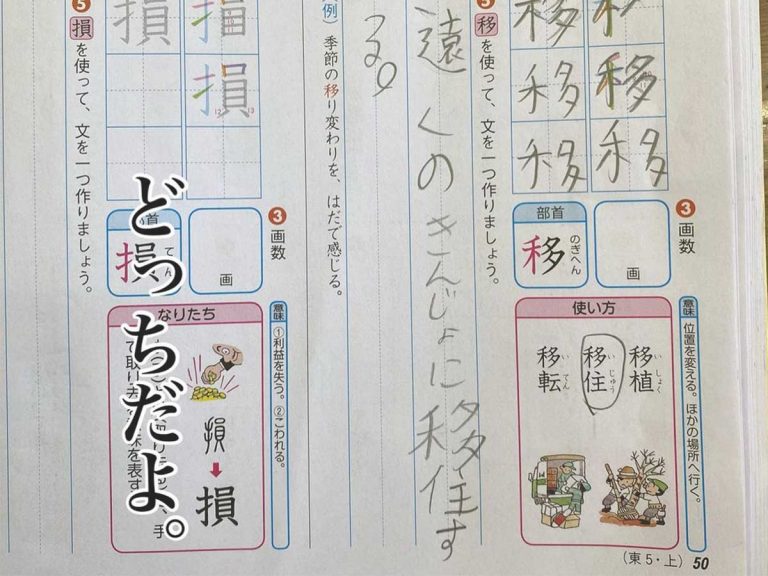 移移
移移
移移
❸画数
画
部首
移
のぎへん
意味 位置を変える。ほかの場所へ行く。
使い方
移植
いしょく
移住
いじゅう
移転
いてん
❺移を使って、文を一つ作りましょう。
遠くのきんじょに移住す
る。
例 季節の移り変わりを、はだで感じる。
損損
損
12 13
❸画数
画
首
損
意味 ①利益を失う。②こわれる。
なりたち
損
損
❺損を使って、文を一つ作りましょう。
どっちだよ。
(東5・上) 50